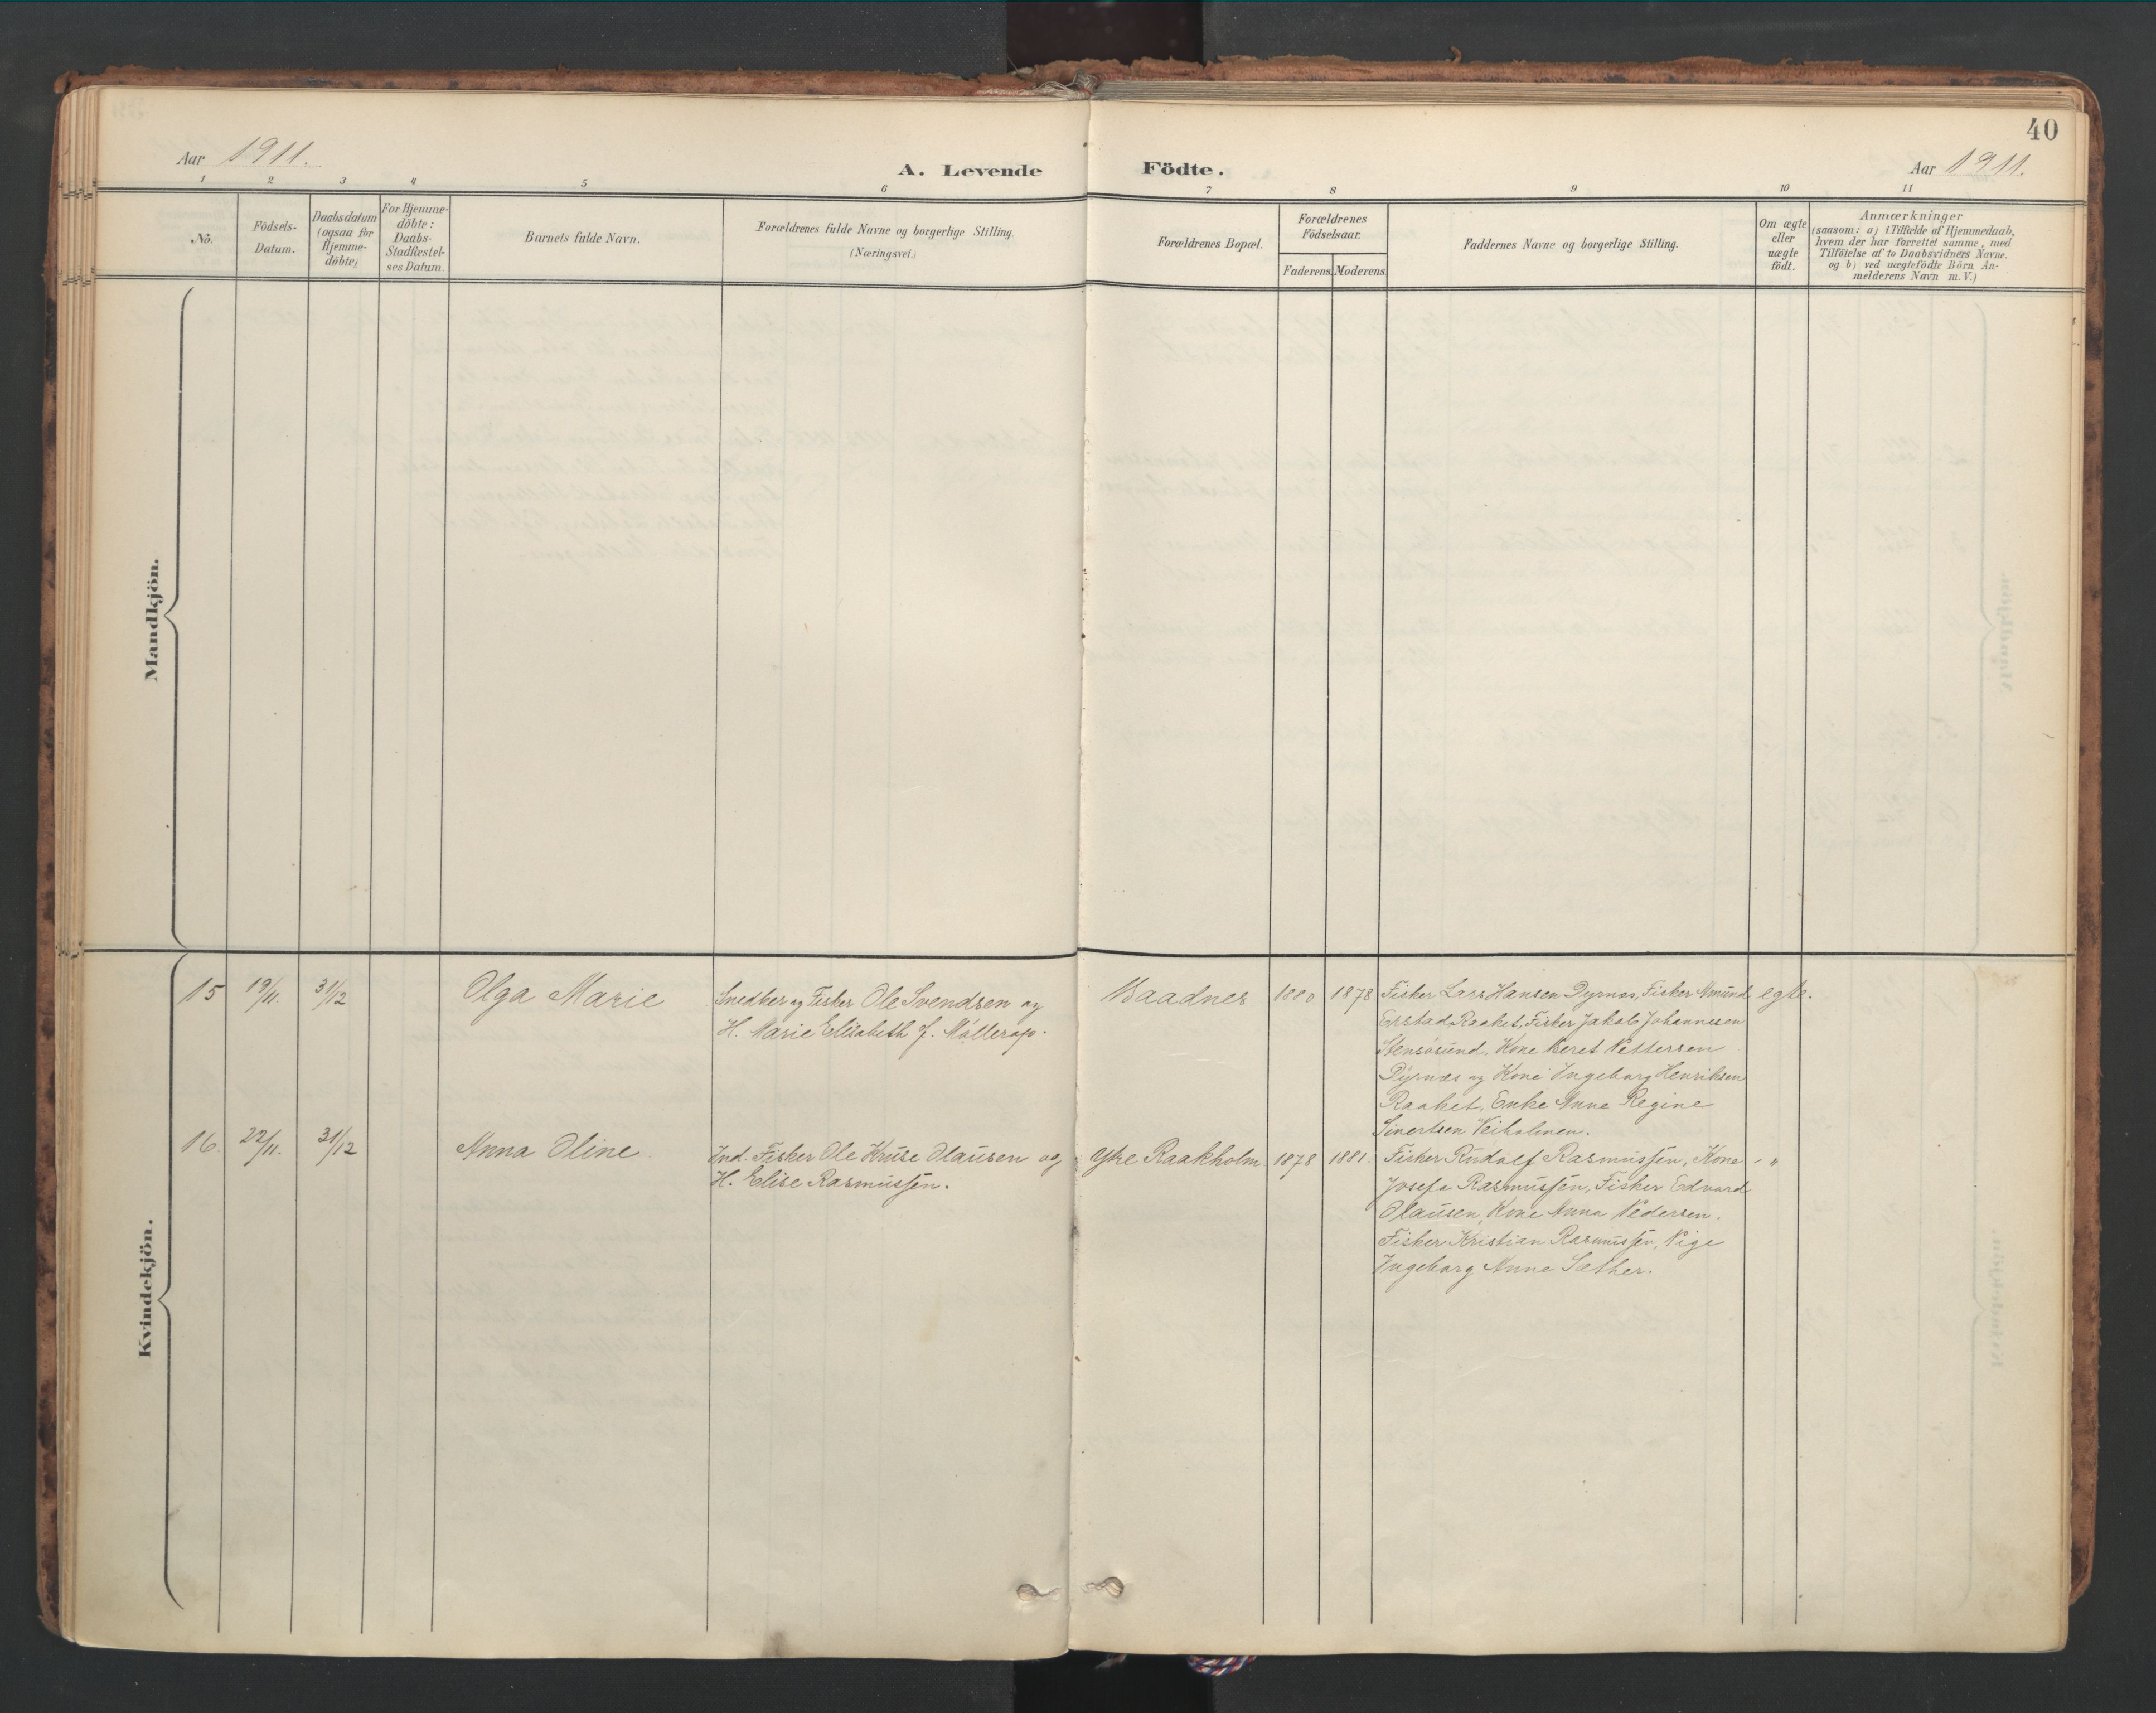 40
Aar 1911.
A. Levende Födte.
Aar 1911.
1 2 3 4 5 6 7 8 9 10 11
Nö.
Födsels-
Datum.
Daabsdatum
(ogsaa for
Hjemme-
döbte)
For Hjemme-
döbte:
Daabs-
Stadfæstel-
ses Datum.
Barnets fulde Navn.
Forældrenes fulde Navne og borgerlige Stilling.
(Næringsvei.)
Forældrenes Bopæl.
Forældrenes
Födselsaar.
Faderens. Moderens.
Faddernes Navne og borgerlige Stilling.
Om ægte
eller
uægte
födt.
Anmærkninger
(saasom: a) i Tilfælde af Hjemmedaab,
hvem der har forrettet samme, med
Tilföielse af to Daabsvidners Navne.
og b) ved uægtefödte Börn An-
melderens Navn m. V.)
Mandkjön.
Kvindekjön.
15 19/11. 31/12 Olga Marie
Snedker og Fisker Ole Svendsen og
H. Marie Elisabeth f. Möllerop.
Baadnes 1880 1878
Fisker Lars Hansen Dyrnæs, Fisker Amund
Erstad Raaket, Fisker Jakob Johannesen
Stensösund, Kone Beret Pettersen
Dyrnæs og Kone Ingeborg Henriksen
Raaket, Enke Anne Regine
Sivertsen Veiholmen.
egte.
16. 22/11. 31/12 Anna Oline.
Ind. Fisker Ole Kruse Olausen og
H. Elise Rasmussen.
Ytre Raakholm. 1878 1881.
Fisker Rudolf Rasmussen, Kone
Josefa Rasmussen, Fisker Edvard
Olausen, Kone Anna Pedersen.
Fisker Kristian Rasmussen, Pige
Ingeborg Anne Sæther.
- "